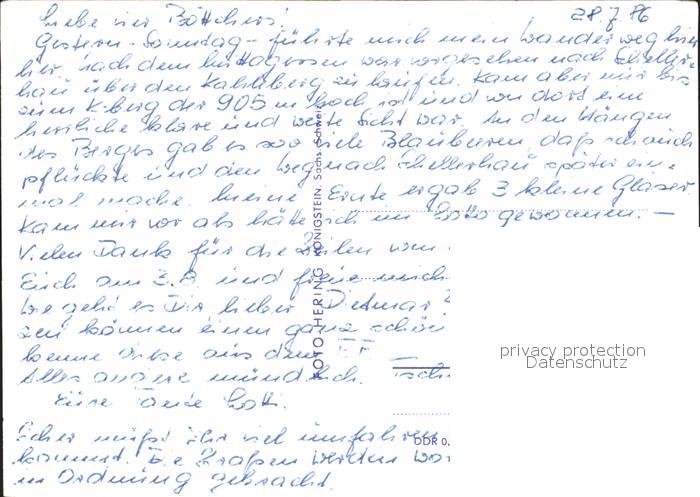 28.7.86
Liebe vier Böttchers!
Gestern - Sonntag - führte mich mein Wanderweg hier
her, nach dem Mittagessen war vorgesehen nach Scheller-
hau über den Kahleberg zu laufen. Kam aber nur bis
zum K-berg der 905 m hoch ist und von dort eine
herrliche klare und weite Sicht war. An den Hängen
des Berges gab es so viele Blaubeeren, daß ich auch
pflückte und den Weg nach Schellerhau später ein-
mal mache. Meine Ernte ergab 3 kleine Gläser
Kam mir vor als hätte ich im Lotto gewonnen. —
Vielen Dank für die Zeilen von
Euch am 3.8. und freue mich
Wie geht es Dir, lieber Dietmar?
zen können einen ganz schön
kenne diese aus dem FF. —
Alles andere mündlich. Tschü
Eure Tante Lotti.
Sicher müßt Ihr viel umfahren
kommt. Die Straßen werden wo
in Ordnung gebracht.
FOTO HERING KÖNIGSTEIN, Sächs. Schweiz
DDR 0,
privacy protection
Datenschutz